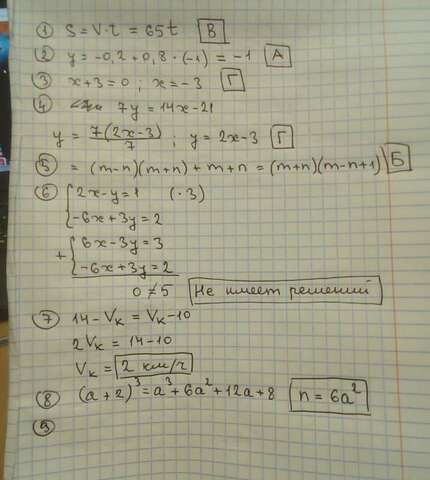 ① S = V·t = 65t В
② y = -0,2 + 0,8·(-1) = -1 А
③ x+3=0 ; x=-3 Г
④ 7y = 14x-21
y = 7(2x-3)/7 ; y = 2x-3 Г
⑤ = (m-n)(m+n) + m+n = (m+n)(m-n+1) Б
⑥ { 2x-y=1 (·3)
-6x+3y=2
+ { 6x-3y=3
-6x+3y=2
0≠5 Не имеет решений
⑦ 14-Vк = Vк-10
2Vк = 14-10
Vк = 2 км/г
⑧ (a+2)³=a³+6a²+12a+8 n = 6a²
⑨